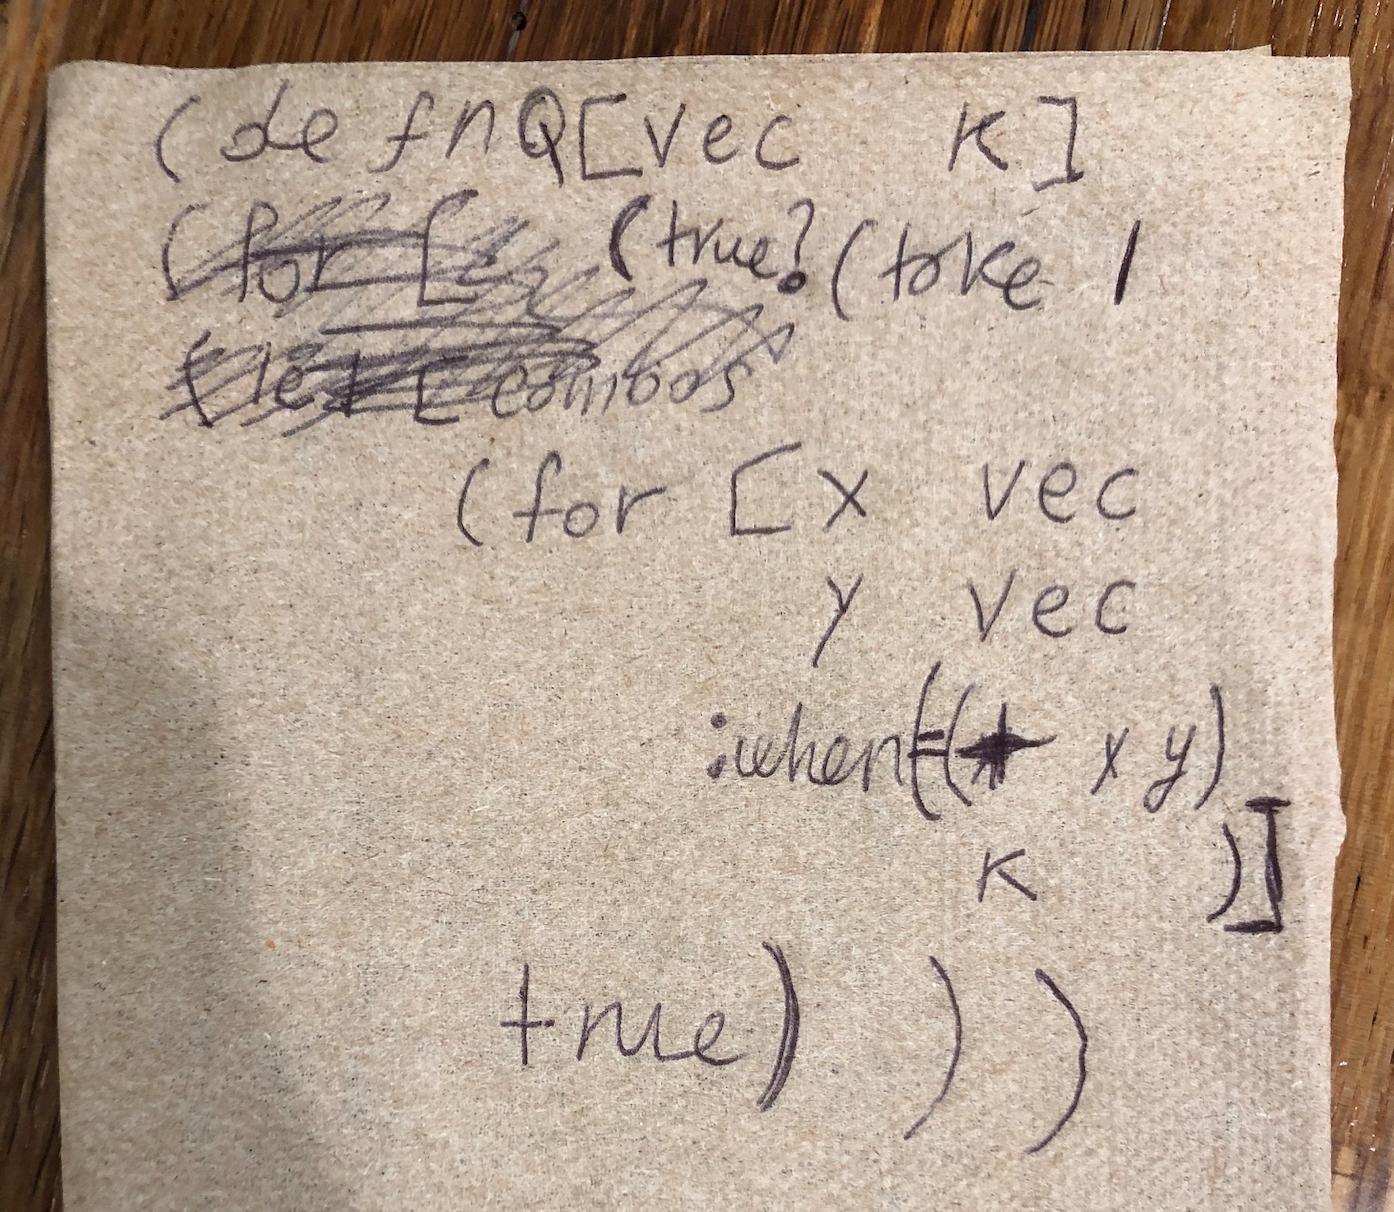 (defn Q [vec K]
(for [ (true? (take 1
(let [combos
(for [x vec
y vec
:when (= (+ x y)
K )]
true) ) )